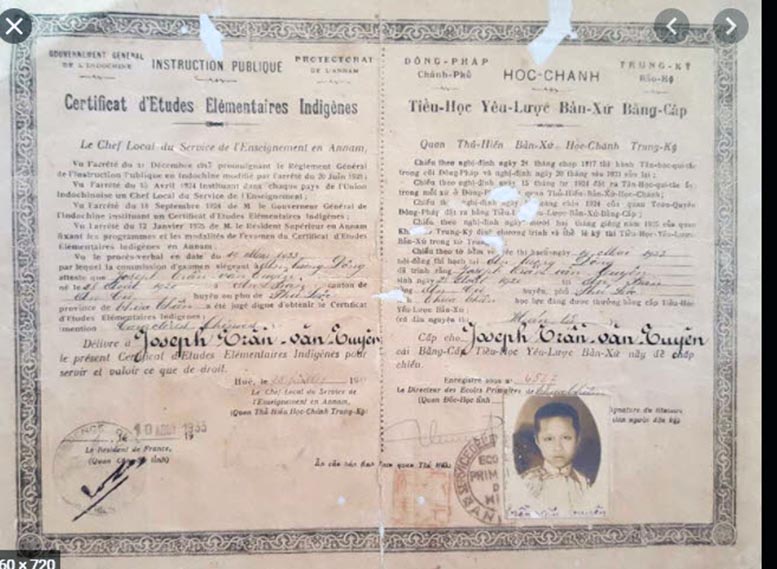 GOUVERNEMENT GÉNÉRAL
DE L'INDOCHINE
INSTRUCTION PUBLIQUE
PROTECTORAT
DE L'ANNAM
Certificat d'Etudes Elémentaires Indigènes
Le Chef Local du Service de l'Enseignement en Annam,
Vu l'arrêté du 21 Décembre 1917 promulguant le Règlement Général
de l'Instruction Publique en Indochine modifié par l'arrêté du 20 Juin 1921;
Vu l'arrêté du 15 Avril 1924 instituant dans chaque pays de l'Union
Indochinoise un Chef Local du Service de l'Enseignement;
Vu l'arrêté du 18 Septembre 1924 de M. le Gouverneur Général de
l'Indochine instituant un Certificat d'Etudes Elémentaires Indigènes;
Vu l'arrêté du 12 Janvier 1925 de M. le Résident Supérieur en Annam
fixant les programmes et les modalités de l'examen du Certificat d'Etudes
Elémentaires Indigènes en Annam;
Vu le procès-verbal en date du 19 Mai 1933
par lequel la commission d'examen siégeant
atteste que Joseph Trần văn Tuyên
né le Août 1920 à canton de
An Cư huyện ou phủ de Phú Lộc
province de Thừa Thiên a été jugé digne d'obtenir le Certificat
d'Etudes Elémentaires Indigènes;
mention Caractères Chinois
Délivre à Joseph Trần-văn-Tuyên
le présent Certificat d'Etudes Elémentaires Indigènes pour
servir et valoir ce que de droit.
Huế, le
Le Chef Local du Service de
l'Enseignement en Annam,
(Quan Thủ-Hiến Học-Chánh Trung-Kỳ)
10 AOUT 1933
Le Résident de France,
(Quan Công tỉnh)
ĐÔNG-PHÁP
Chánh-Phủ
HOC-CHANH
TRUNG-KỲ
Bảo-Hộ
Tiểu-Học Yếu-Lược Bản-Xứ Bằng-Cấp
Quan Thủ-Hiến Bản-Xứ Học-Chánh Trung-Kỳ
Chiếu theo nghị-định ngày 21 tháng chạp 1917 thi hành Tân-học-qui-tắc
trong cõi Đông-Pháp và nghị-định ngày 20 tháng sáu 1921 sửa lại;
Chiếu theo nghị-định ngày 15 tháng tư 1924 đặt ra
mỗi xứ ở Đông-Pháp quan Thủ-Hiến Bản-Xứ Học-Chánh;
tháng chín 1924 của quan Toàn-Quyền
Đông-Pháp đặt ra bằng Tiểu-Học Yếu-Lược Bản-Xứ Bằng-Cấp;
Chiếu theo nghị-định ngày mười hai tháng giêng năm 1925 của quan
Trung-Kỳ định chương-trình và thể lệ kỳ thi Tiểu-Học-Yếu-Lược
Bản-Xứ trong xứ Trung
19 Mai 1933
hội-đồng thi hạch tại
đã trình rằng Joseph Trần văn Tuyên
sinh ngày Août 1920
huyện, phủ Phú Lộc
tỉnh Thừa Thiên học lực đáng được thưởng bằng cấp Tiểu-Học-
Yếu-Lược Bản-Xứ;
(có dấu nguyện thi) Hán tự
Cấp cho Joseph Trần-văn-Tuyên
cái Bằng-Cấp Tiểu-Học Yếu-Lược Bản-Xứ này để chấp
chiếu.
Enregistré sous n°
Le Directeur des Ecoles Primaires de Thừa Thiên
(Quan Đốc-Học tỉnh
Signature du titulaire
Trần văn Tuyên
60 x 720